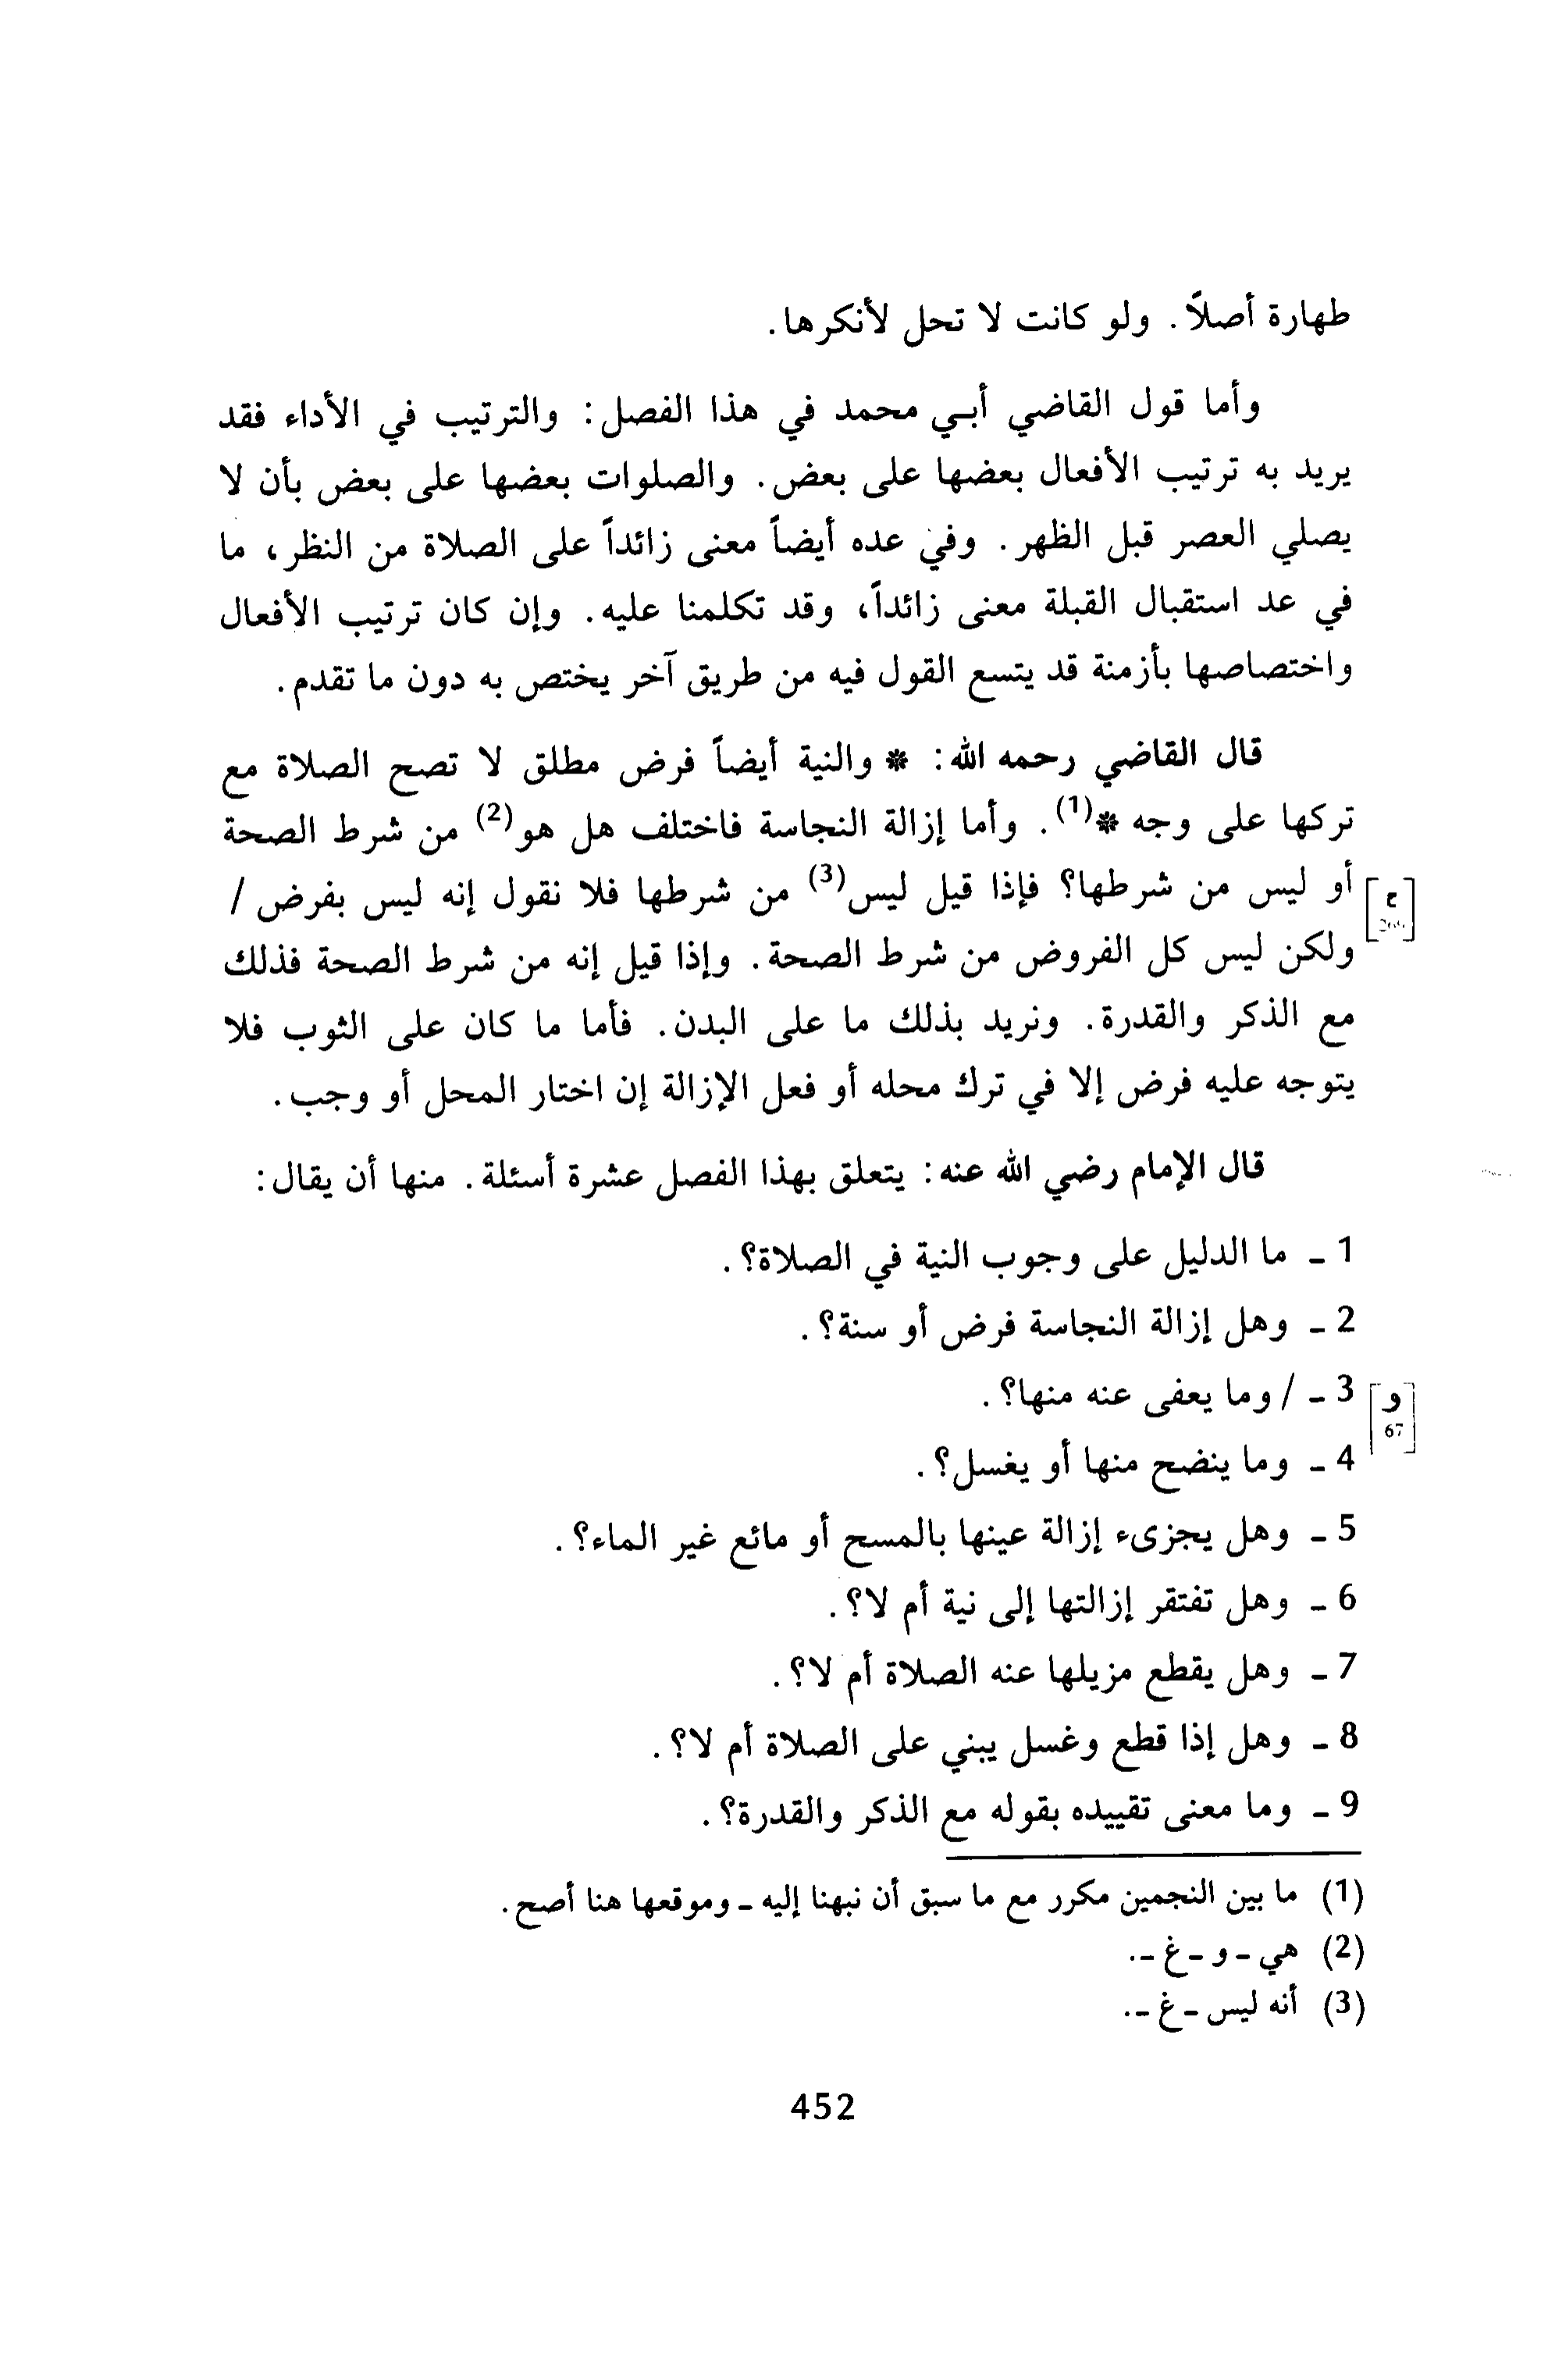 طهارة أصلاً. ولو كانت لا تحل لأنكرها.
وأما قول القاضي أبي محمد في هذا الفصل: والترتيب في الأداء فقد
يريد به ترتيب الأفعال بعضها على بعض. والصلوات بعضها على بعض بأن لا
يصلي العصر قبل الظهر. وفي عده أيضاً معنى زائداً على الصلاة من النظر، ما
في عد استقبال القبلة معنى زائداً، وقد تكلمنا عليه. وإن كان ترتيب الأفعال
واختصاصها بأزمنة قد يتسع القول فيه من طريق آخر يختص به دون ما تقدم.
قال القاضي رحمه الله: * والنية أيضاً فرض مطلق لا تصح الصلاة مع
تركها على وجه *(1). وأما إزالة النجاسة فاختلف هل هو(2) من شرط الصحة
أو ليس من شرطها؟ فإذا قيل ليس(3) من شرطها فلا نقول إنه ليس بفرض /
[ح]
ولكن ليس كل الفروض من شرط الصحة. وإذا قيل إنه من شرط الصحة فذلك
مع الذكر والقدرة. ونريد بذلك ما على البدن. فأما ما كان على الثوب فلا
يتوجه عليه فرض إلا في ترك محله أو فعل الإزالة إن اختار المحل أو وجب.
قال الإمام رضي الله عنه: يتعلق بهذا الفصل عشرة أسئلة. منها أن يقال:
1 ـ ما الدليل على وجوب النية في الصلاة؟.
2 ـ وهل إزالة النجاسة فرض أو سنة؟.
3 ـ / وما يعفى عنه منها؟.
[و
67]
4 ـ وما ينضح منها أو يغسل؟.
5 ـ وهل يجزىء إزالة عينها بالمسح أو مائع غير الماء؟.
6 ـ وهل تفتقر إزالتها إلى نية أم لا؟.
7 ـ وهل يقطع مزيلها عنه الصلاة أم لا؟.
8 ـ وهل إذا قطع وغسل يبني على الصلاة أم لا؟.
9 ـ وما معنى تقييده بقوله مع الذكر والقدرة؟.
(1) ما بين النجمين مكرر مع ما سبق أن نبهنا إليه ـ وموقعها هنا أصح.
(2) هي ـ و ـ غ ـ.
(3) أنه ليس ـ غ ـ.
452